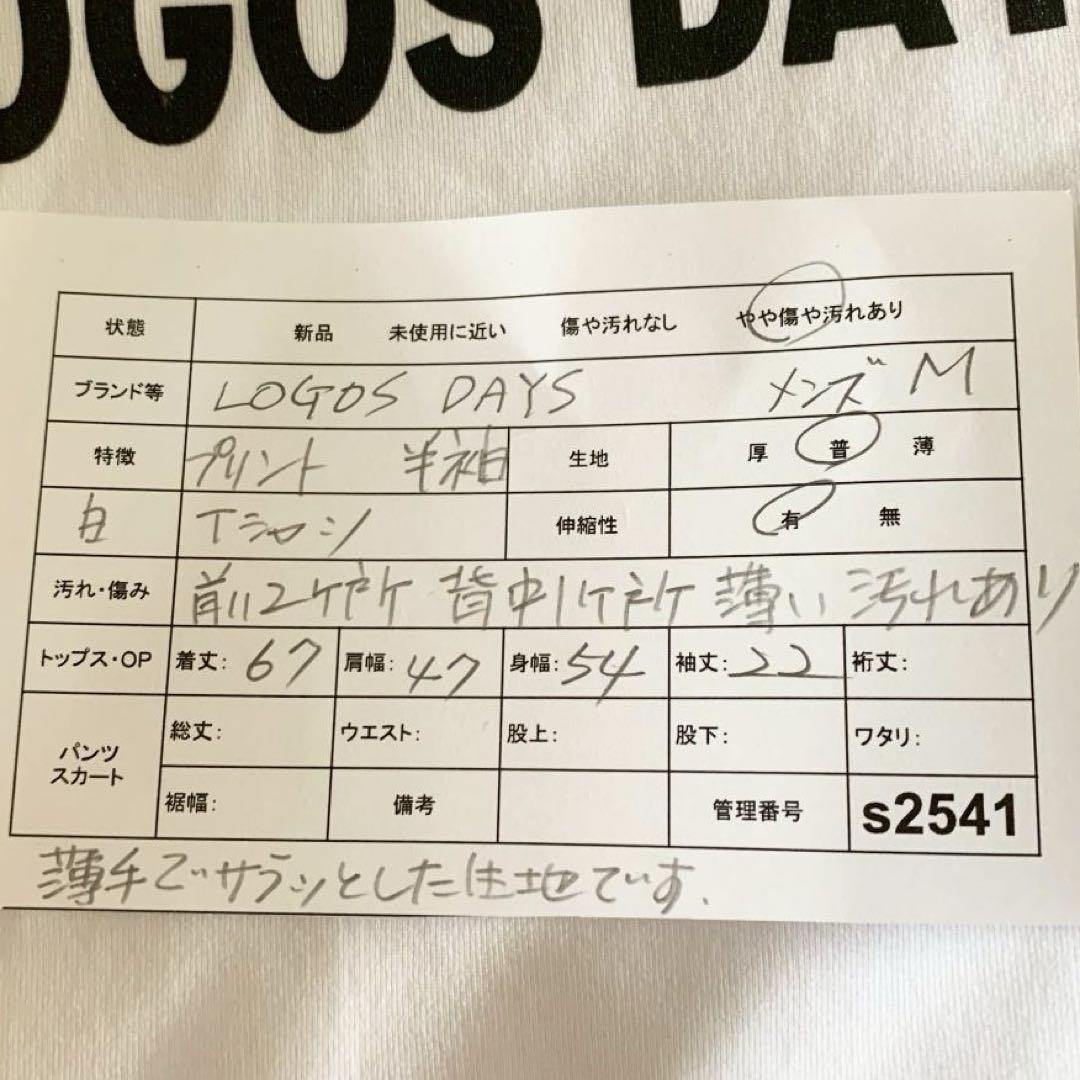 OGOS DAY
状態 新品 未使用に近い 傷や汚れなし やや傷や汚れあり
ブランド等 LOGOS DAYS メンズ M
特徴 プリント 半袖 生地 厚 普 薄
白 Tシャツ 伸縮性 有 無
汚れ・傷み 前2ヶ所 背中1ヶ所 薄い汚れあり
トップス・OP 着丈: 67 肩幅: 47 身幅: 54 袖丈: 22 裄丈:
パンツ スカート 総丈: ウエスト: 股上: 股下: ワタリ:
裾幅: 備考 管理番号 s2541
薄手でサラッとした生地です.